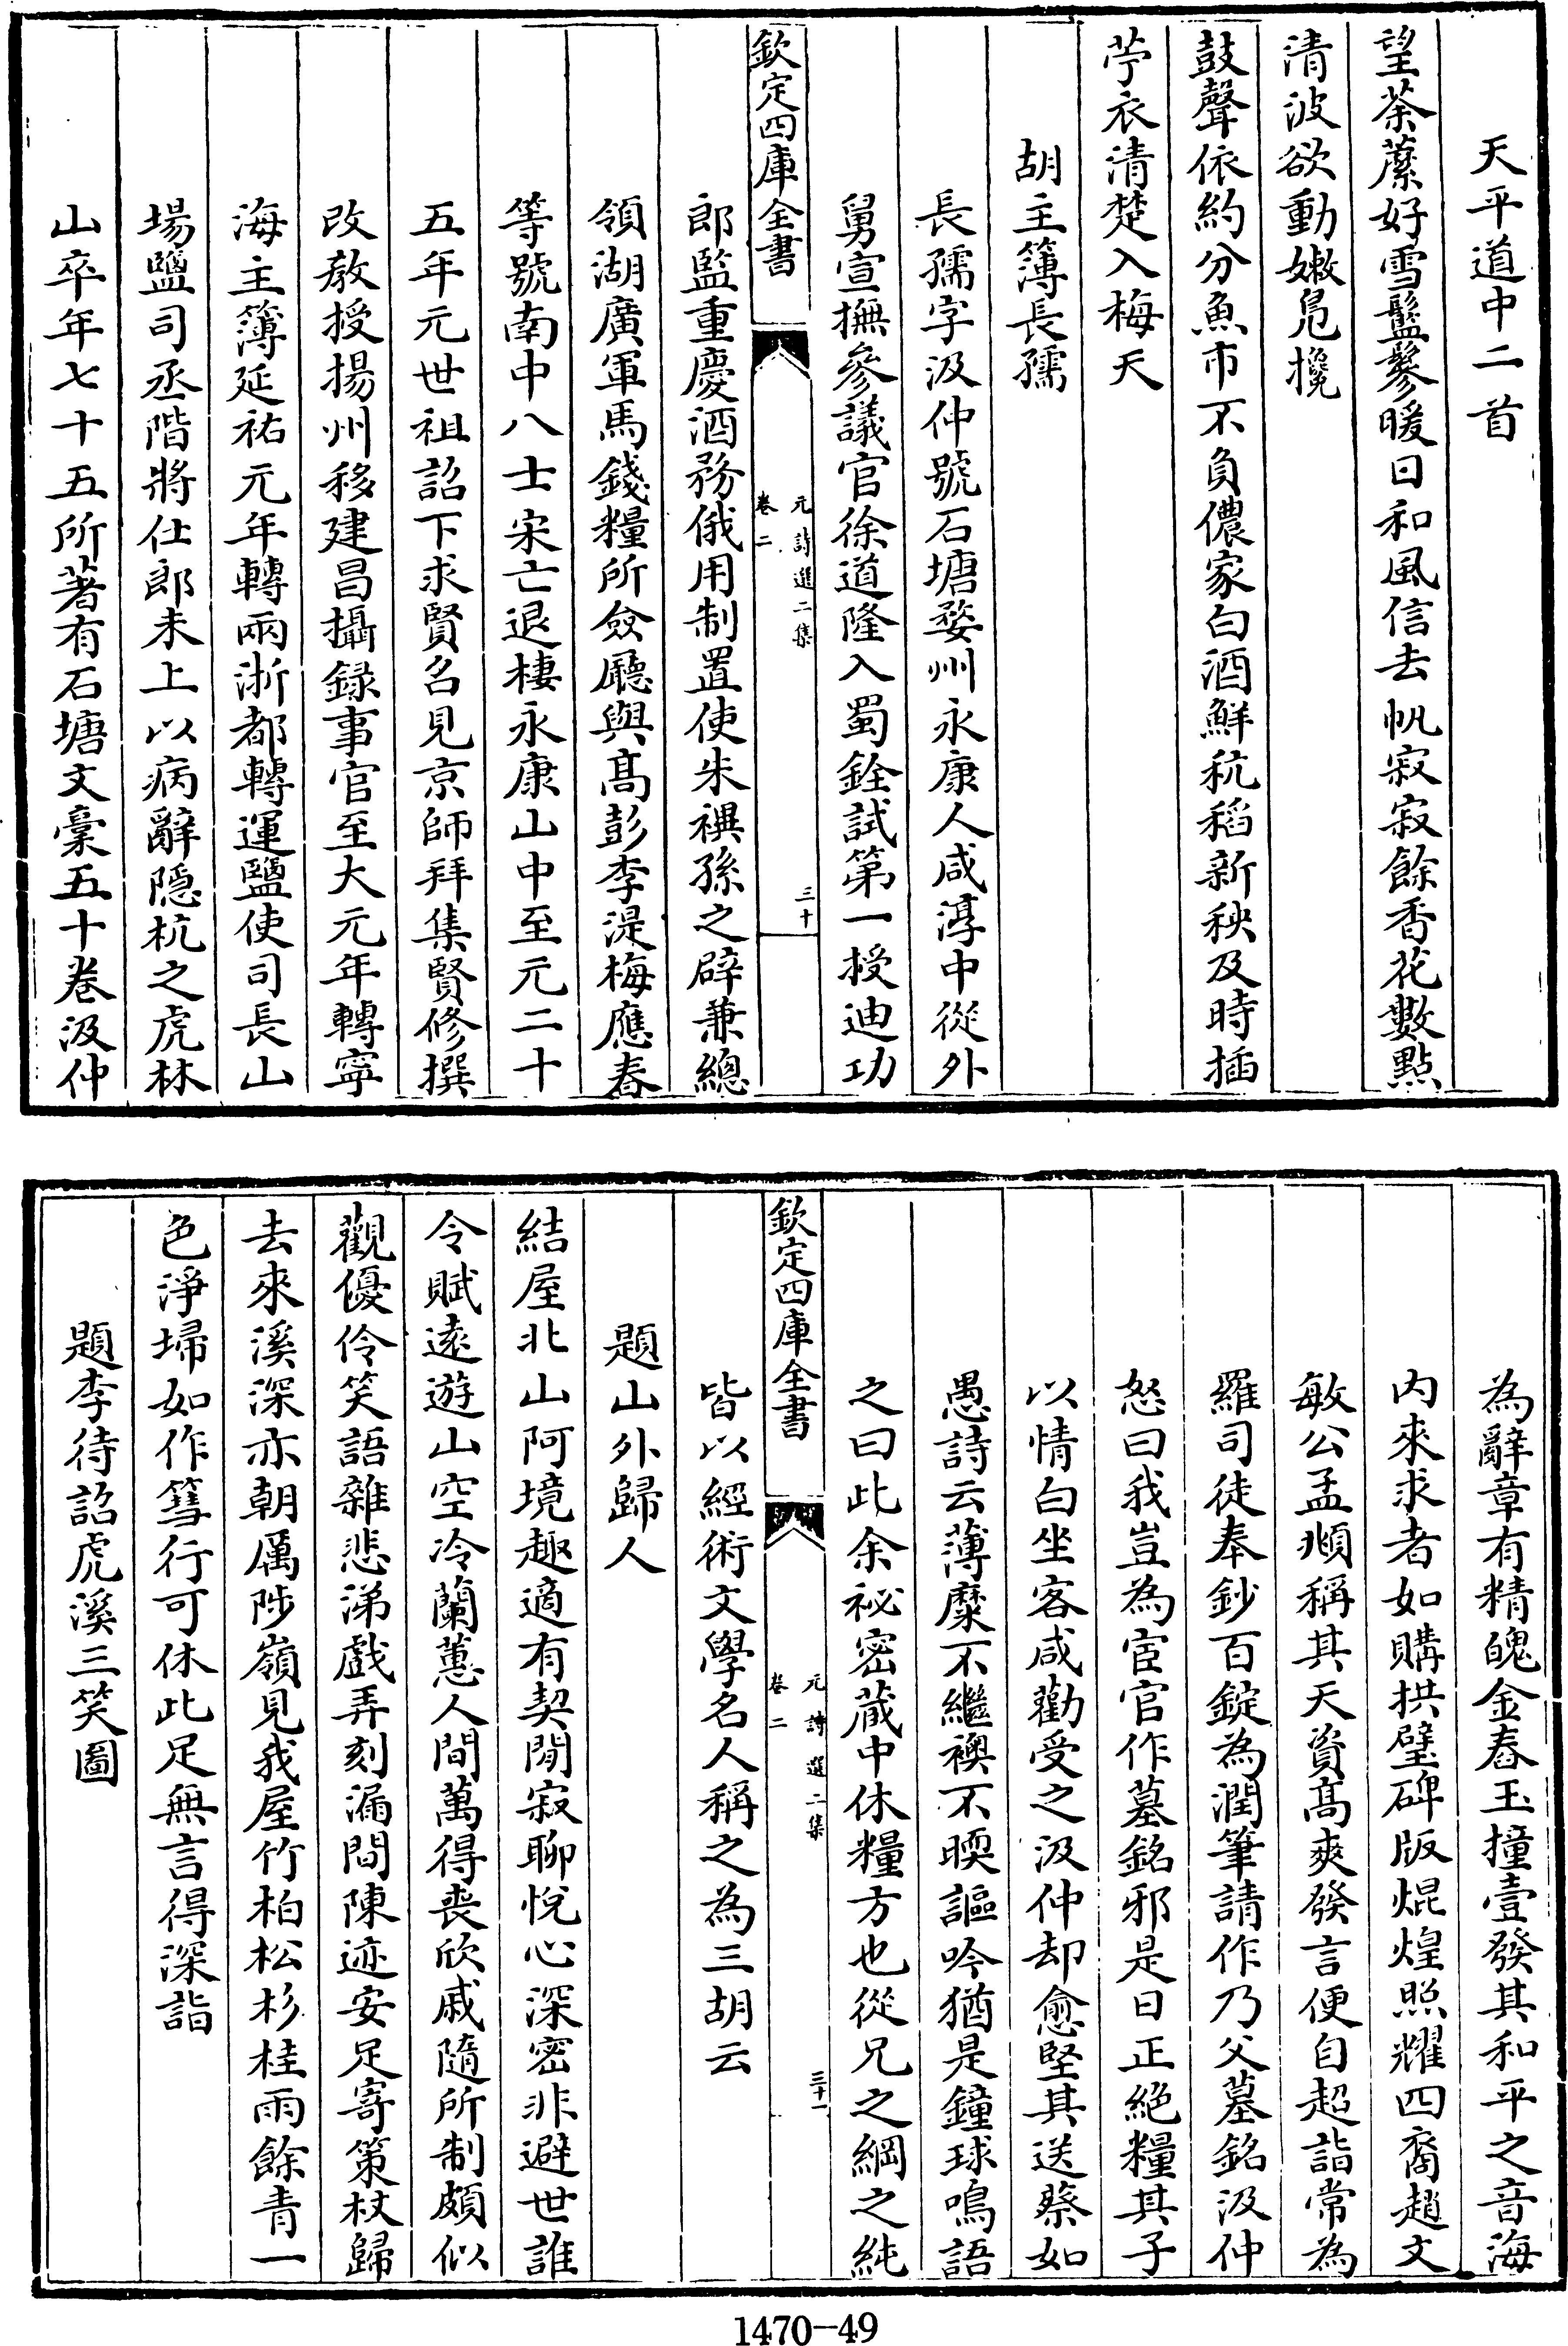 天平道中二首
望荼䕷好雪鬅鬖暖日和風信去帆寂寂餘香花數點
清波欲動嫩鳧攙
鼓聲依約分魚市不負儂家白酒鮮秔稻新秧及時插
苧衣清楚入梅天
胡主簿長孺
長孺字汲仲號石塘婺州永康人咸淳中從外
舅宣撫參議官徐道隆入蜀銓試第一授迪功
欽定四庫全書
元詩選二集
卷二
三十
郎監重慶酒務俄用制置使朱禩孫之辟兼總
領湖廣軍馬錢糧所僉廳與髙彭李湜梅應春
等號南中八士宋亡退棲永康山中至元二十
五年元世祖詔下求賢召見京師拜集賢修撰
改教授揚州移建昌攝録事官至大元年轉寧
海主簿延祐元年轉兩浙都轉運鹽使司長山
場鹽司丞階將仕郎未上以病辭隱杭之虎林
山卒年七十五所著有石塘文稾五十卷汲仲
為辭章有精魄金舂玉撞壹發其和平之音海
内來求者如購拱璧碑版焜煌照耀四裔趙文
敏公孟頫稱其天資髙爽發言便自超詣常為
羅司徒奉鈔百錠為潤筆請作乃父墓銘汲仲
怒曰我豈為宦官作墓銘邪是日正絶糧其子
以情白坐客咸勸受之汲仲却愈堅其送蔡如
愚詩云薄糜不繼襖不煗謳吟猶是鐘球鳴語
之曰此余祕密蔵中休糧方也從兄之綱之純
欽定四庫全書
元詩選二集
卷二
三十一
皆以經術文學名人稱之為三胡云
題山外歸人
結屋北山阿境趣適有契閒寂聊悅心深密非避世誰
令賦遠遊山空冷蘭蕙人間萬得喪欣戚隨所制頗似
觀優伶笑語雜悲涕戲弄刻漏間陳迹安足寄策杖歸
去來溪深亦朝厲陟嶺見我屋竹柏松杉桂雨餘青一
色淨埽如作篲行可休此足無言得深詣
題李待詔虎溪三笑圖
1470-49